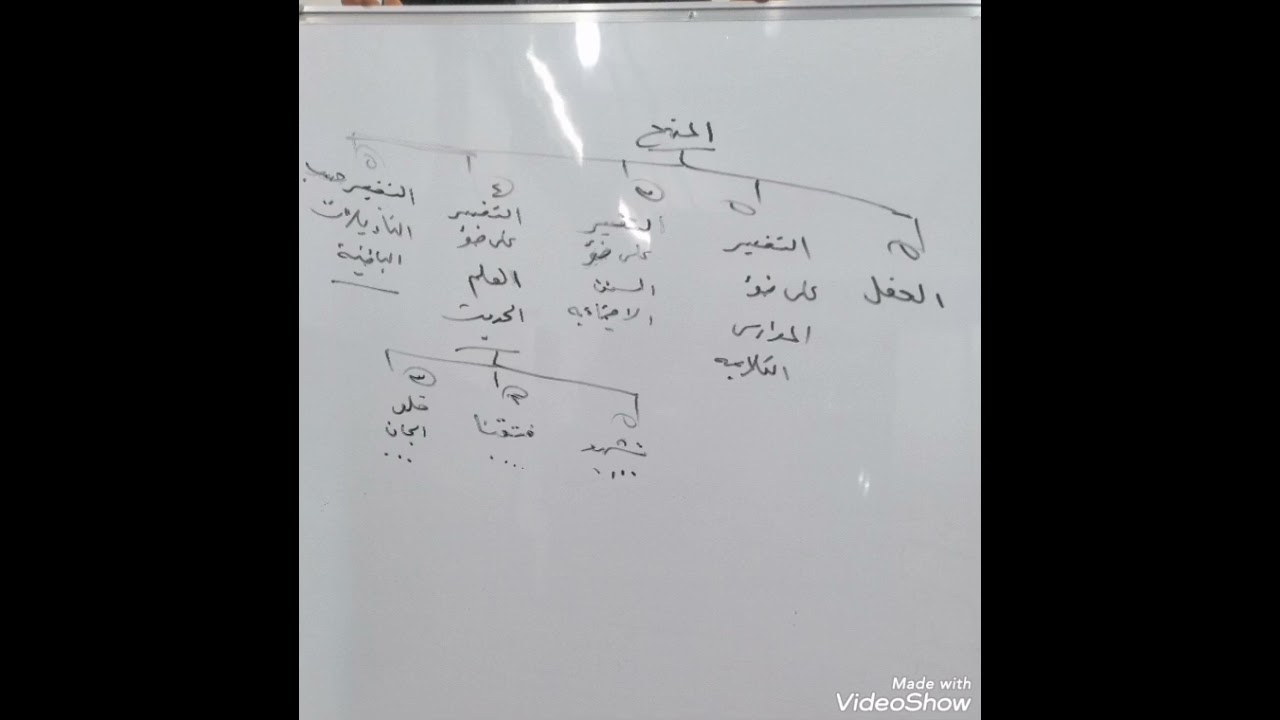 المنهج
العقل
التفسير
على ضوء
المدارس
الكلاميه
٣
التفسير
على ضوء
السنن
الاجتماعيه
٤
التفسير
على ضوء
العلم
الحديث
التفسير حسب
التأويلات
الباطنية
نشهد
....
٢
فتقنا
....
٣
خلق
الجان
...
Made with
VideoShow